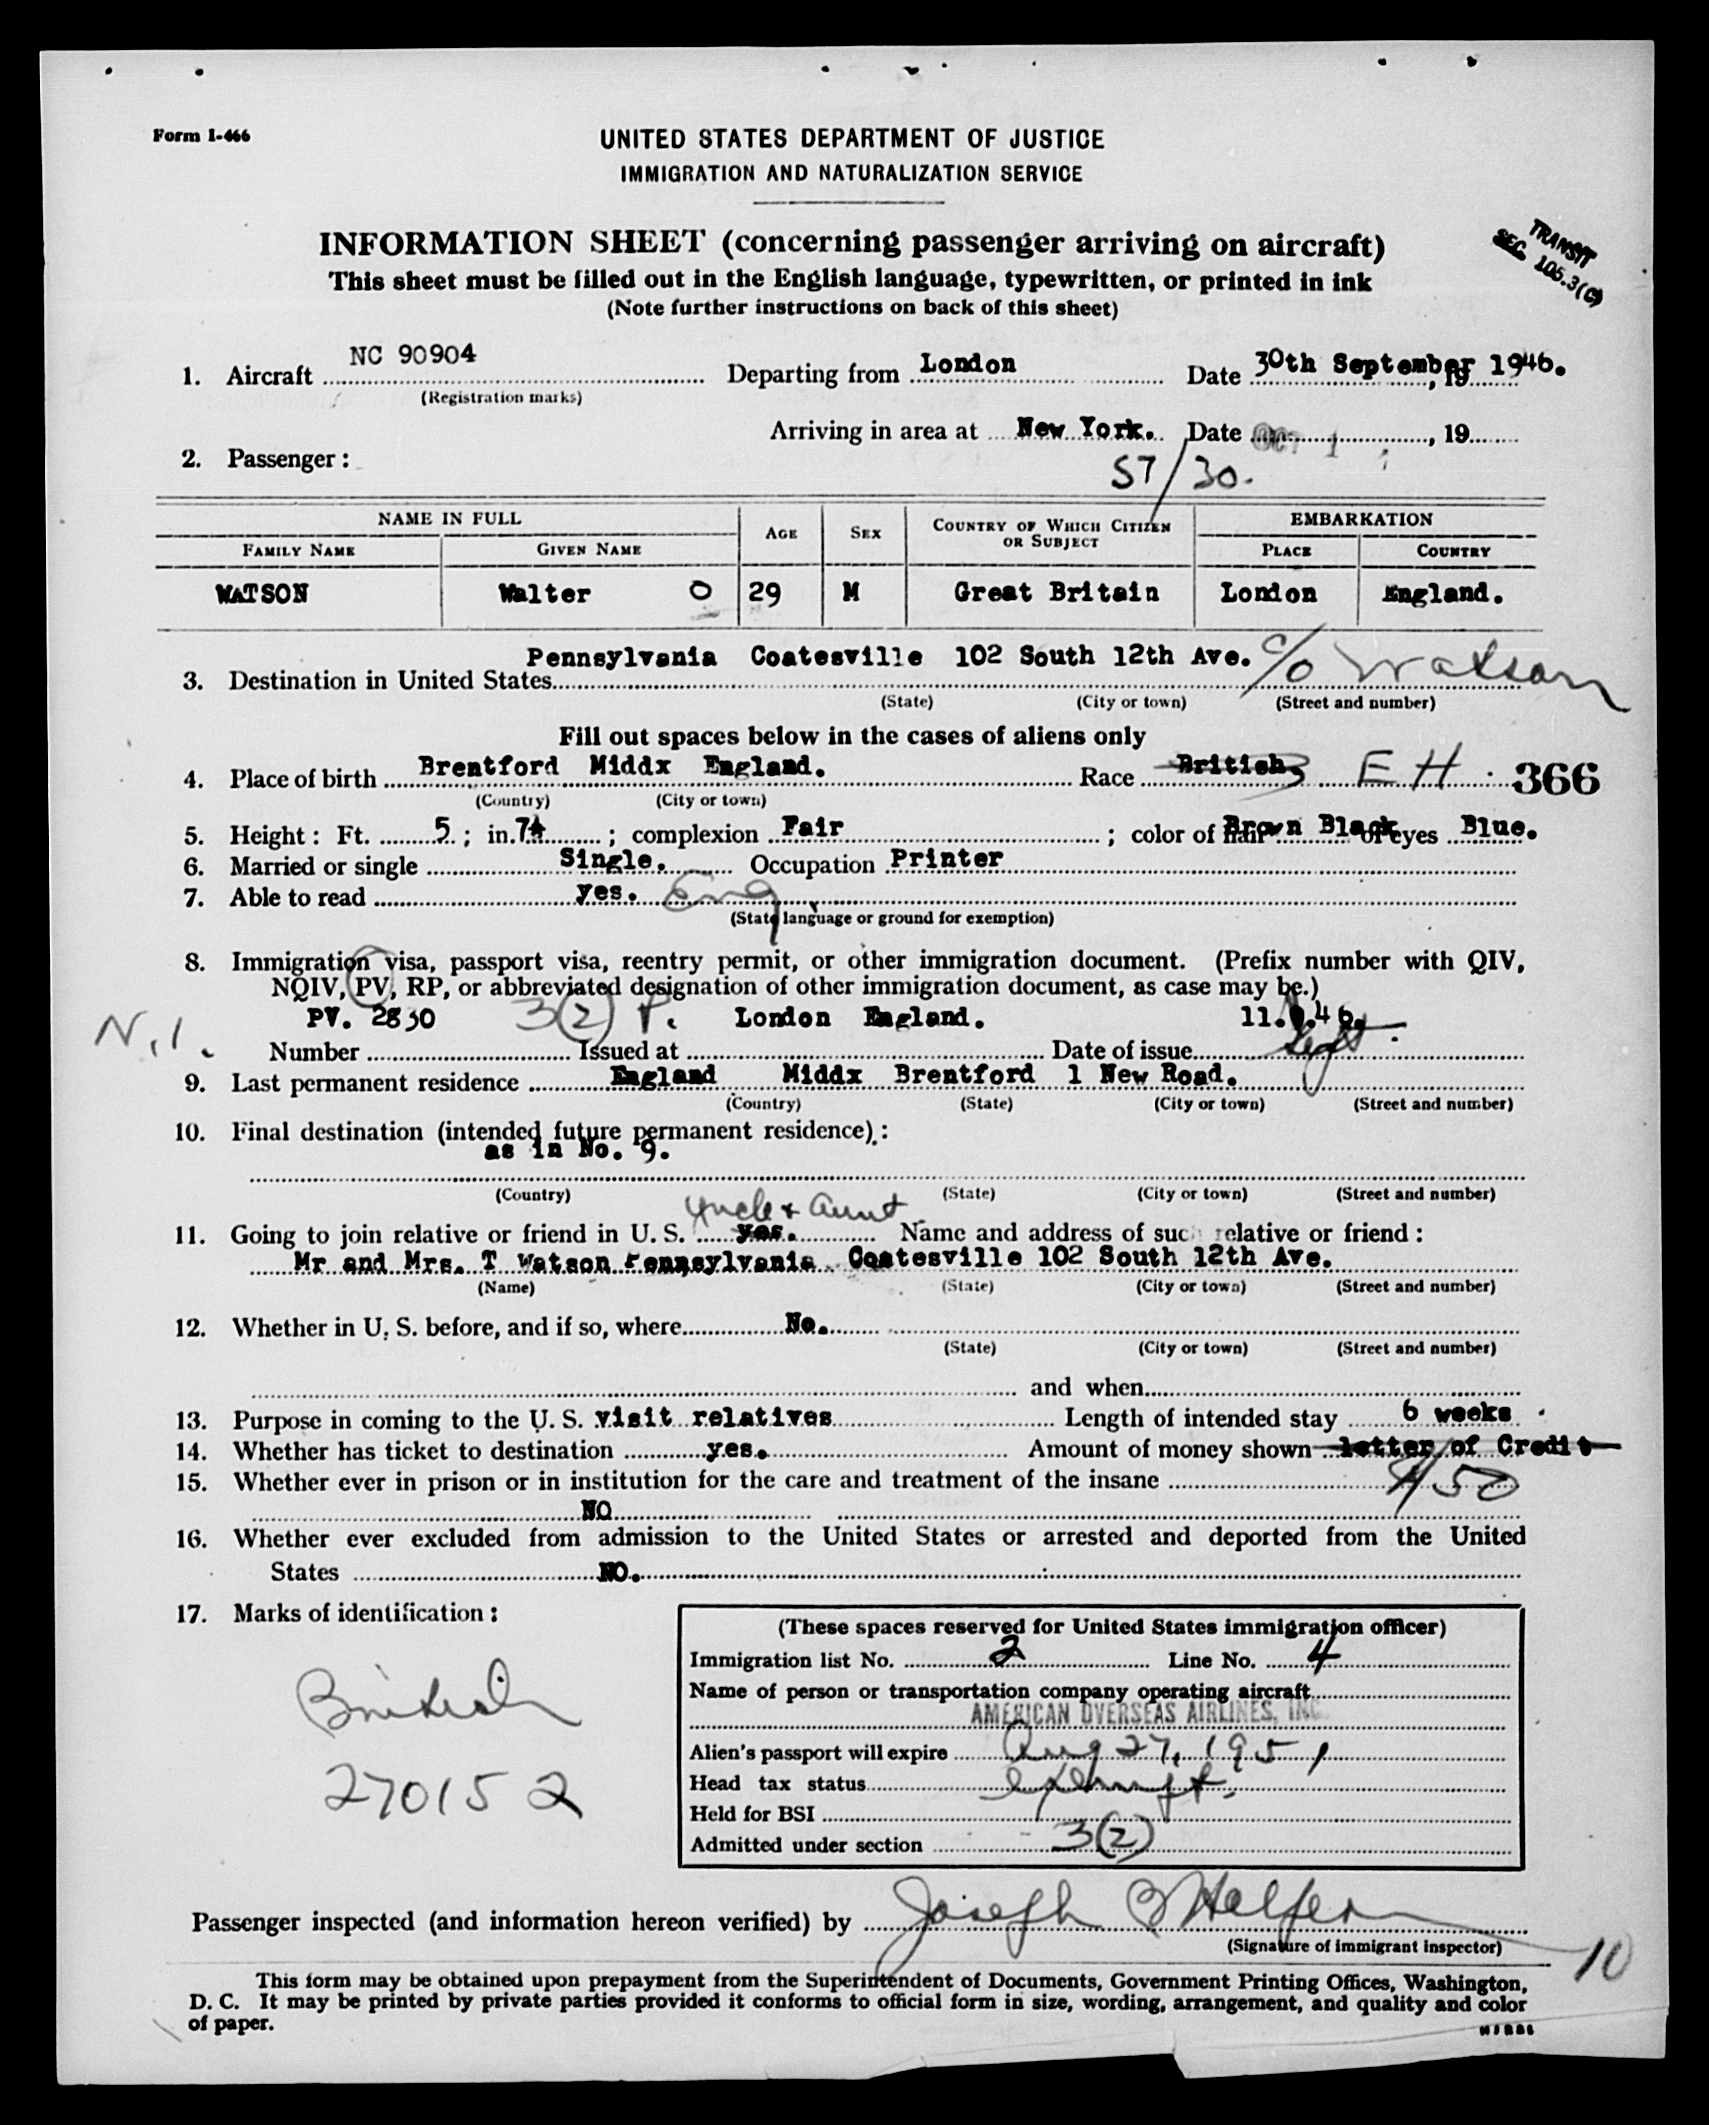 Form I-466
UNITED STATES DEPARTMENT OF JUSTICE
IMMIGRATION AND NATURALIZATION SERVICE
INFORMATION SHEET (concerning passenger arriving on aircraft)
TRANSIT
SEC. 105.3(C)
This sheet must be filled out in the English language, typewritten, or printed in ink
(Note further instructions on back of this sheet)
1. Aircraft NC 90904 Departing from London Date 30th September, 19 1946.
(Registration marks)
Arriving in area at New York. Date OCT 1, 19
2. Passenger:
57/30.
NAME IN FULL AGE SEX COUNTRY OF WHICH CITIZEN OR SUBJECT EMBARKATION
FAMILY NAME GIVEN NAME PLACE COUNTRY
WATSON Walter O 29 M Great Britain London England.
Pennsylvania Coatesville 102 South 12th Ave. c/o Watson
3. Destination in United States
(State) (City or town) (Street and number)
Fill out spaces below in the cases of aliens only
4. Place of birth Brentford Middx England. Race British E H. 366
(Country) (City or town)
5. Height: Ft. 5; in. 7½; complexion Fair; color of hair Brown Black of eyes Blue.
6. Married or single Single. Occupation Printer
7. Able to read yes. Eng
(State language or ground for exemption)
8. Immigration visa, passport visa, reentry permit, or other immigration document. (Prefix number with QIV,
NQIV, PV, RP, or abbreviated designation of other immigration document, as case may be.)
N.I. PV. 2830 3(2) P. London England. 11.9.46. Sept.
Number Issued at Date of issue
9. Last permanent residence England Middx Brentford 1 New Road.
(Country) (State) (City or town) (Street and number)
10. Final destination (intended future permanent residence):
as in No. 9.
(Country) (State) (City or town) (Street and number)
Uncle + Aunt
11. Going to join relative or friend in U. S. yes. Name and address of such relative or friend:
Mr and Mrs. T Watson Pennsylvania Coatesville 102 South 12th Ave.
(Name) (State) (City or town) (Street and number)
12. Whether in U. S. before, and if so, where No.
(State) (City or town) (Street and number)
and when
13. Purpose in coming to the U. S. visit relatives Length of intended stay 6 weeks
14. Whether has ticket to destination yes. Amount of money shown letter of Credit
15. Whether ever in prison or in institution for the care and treatment of the insane $50
NO
16. Whether ever excluded from admission to the United States or arrested and deported from the United
States NO.
17. Marks of identification:
British
270152
(These spaces reserved for United States immigration officer)
Immigration list No. 2 Line No. 4
Name of person or transportation company operating aircraft
AMERICAN OVERSEAS AIRLINES, INC.
Alien's passport will expire Aug 27, 1951
Head tax status exempt.
Held for BSI
Admitted under section 3(2)
Passenger inspected (and information hereon verified) by Joseph B Halfern
(Signature of immigrant inspector)
10
This form may be obtained upon prepayment from the Superintendent of Documents, Government Printing Offices, Washington,
D. C. It may be printed by private parties provided it conforms to official form in size, wording, arrangement, and quality and color
of paper.